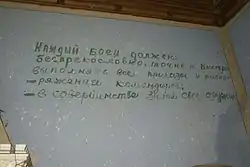 КАЖДЫЙ БОЕЦ ДОЛЖЕН:
беспрекословно, точно и быстро
выполнять все приказы и распо-
-ряжания командира.
- в совершенстве знать своё оружие